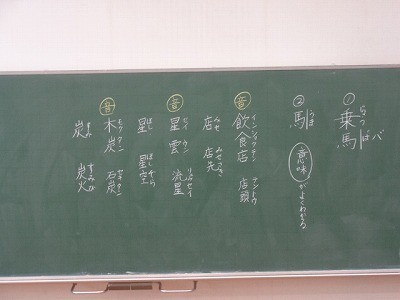 ① 乗馬 ば バ
② 馬 うま 意味 がよくわかる
音 飲食店 インショクテン 店頭 テントウ
店 みせ 店先 みせさき
音 星雲 セイ ウン 流星 リュウセイ
星 ほし 星空 ほしぞら
音 木炭 モクタン 石炭 セキタン
炭 すみ 炭火 すみび